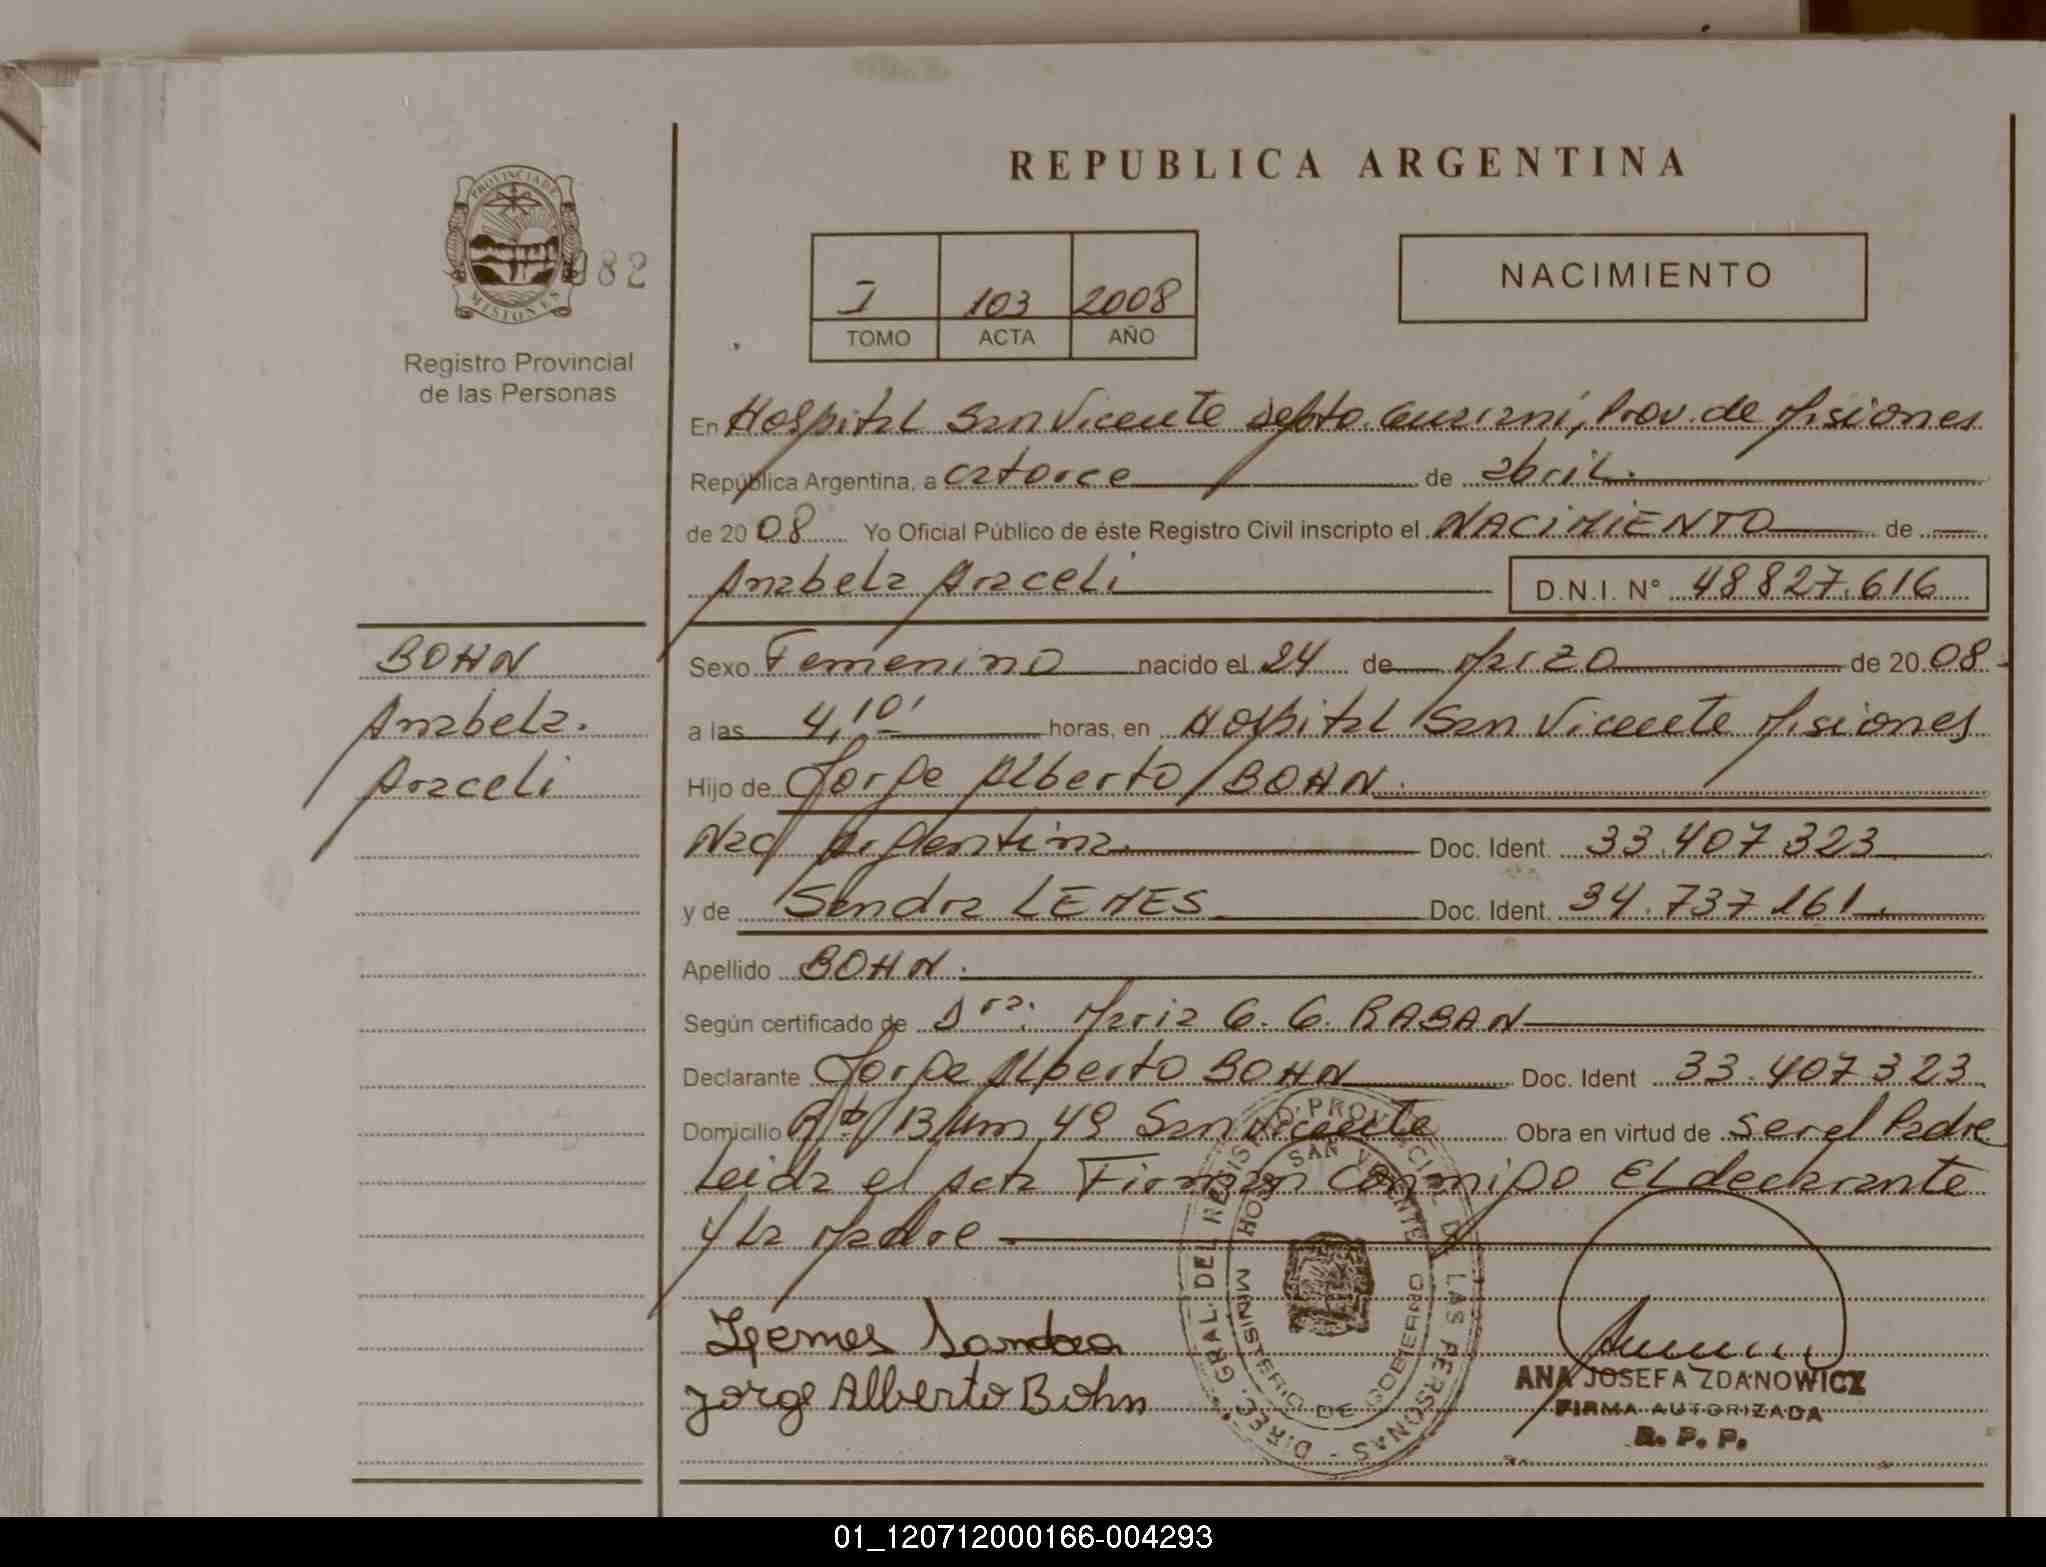 REPUBLICA ARGENTINA
PROVINCIA DE
MISIONES
082
Registro Provincial
de las Personas
I 103 2008
TOMO ACTA AÑO
NACIMIENTO
En Hospital San Vicente Depto. Guaraní, Prov. de Misiones
República Argentina, a catorce de abril.
de 20 08 Yo Oficial Público de éste Registro Civil inscripto el NACIMIENTO de
Anabela Araceli D.N.I. N° 48827.616
BOHN
Anabela.
Araceli
Sexo Femenino nacido el 24 de Marzo de 20 08-
a las 4,10' horas, en Hospital San Vicente Misiones
Hijo de Jorge Alberto BOHN.
Nac Argentina. Doc. Ident. 33.407.323
y de Sandra LEMES Doc. Ident. 34.737.161.
Apellido BOHN.
Según certificado de Dra. Maria G. G. RABAN
Declarante Jorge Alberto BOHN Doc. Ident 33.407323
Domicilio 13 Km 49 San Vicente Obra en virtud de ser el Padre
Leida el Acta Firman conmigo El declarante
y La Madre
Lemes Sandra
Jorge Alberto Bohn
DIREC. GRAL. DEL REGISTRO PROVINCIAL DE LAS PERSONAS -
HOSP. SAN VICENTE
MINISTERIO DE GOBIERNO
ANA JOSEFA ZDANOWICZ
FIRMA AUTORIZADA
R. P. P.
01_120712000166-004293